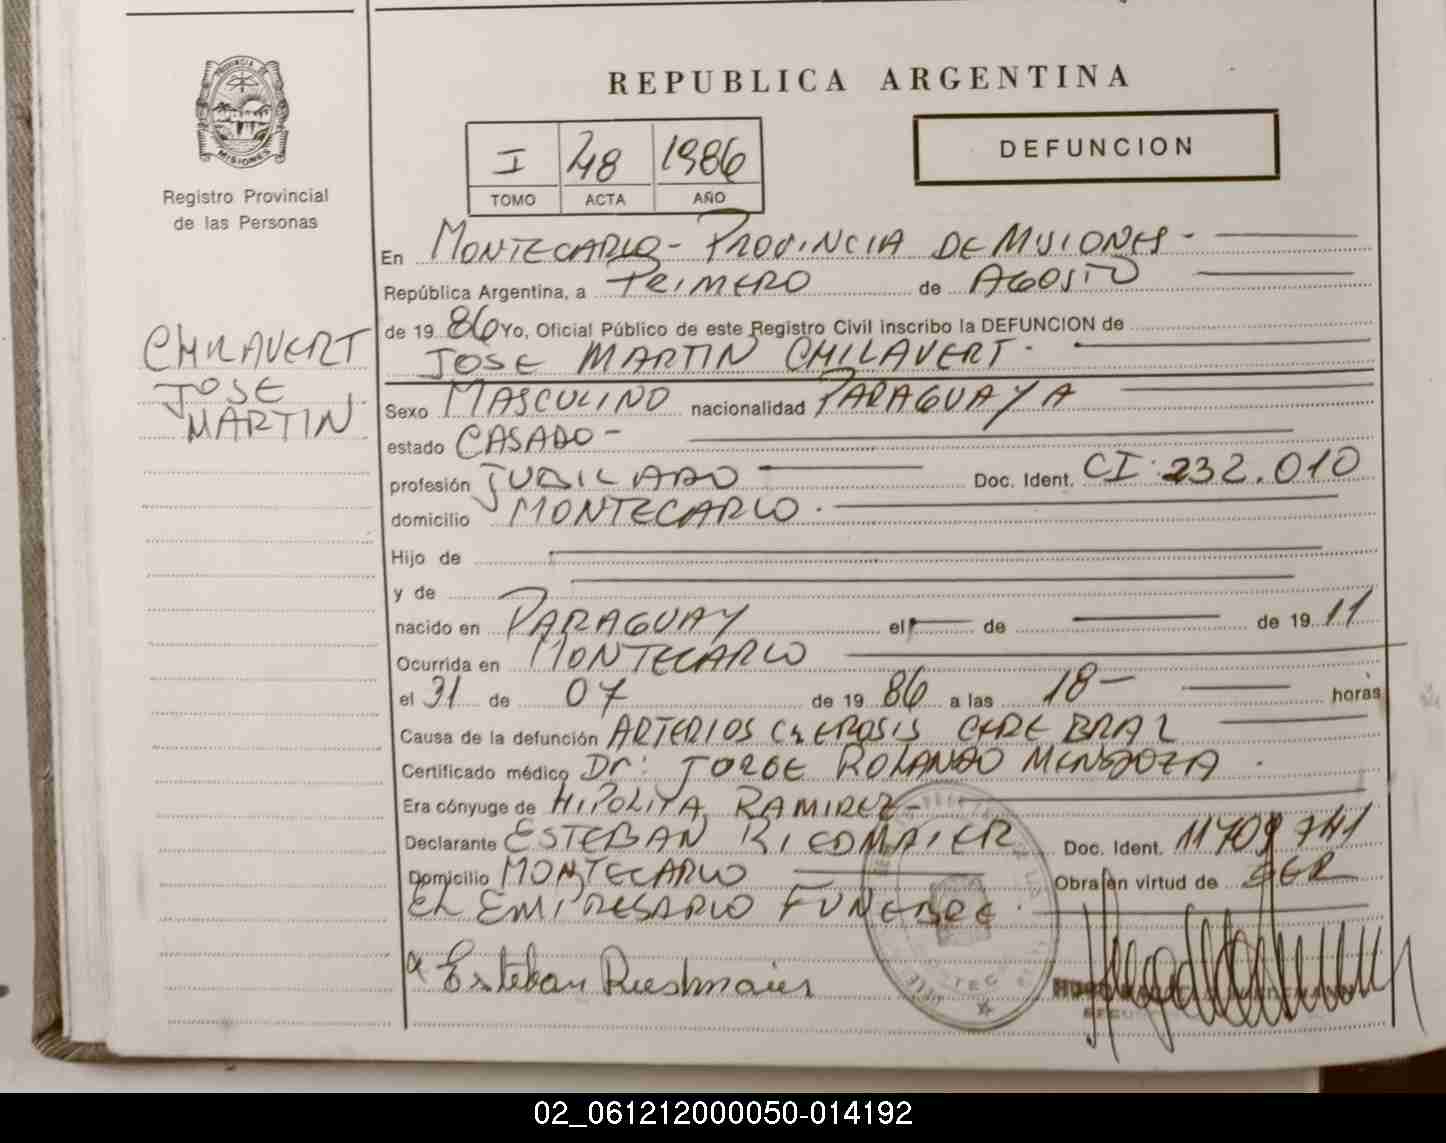 PROVINCIA DE
MISIONES
Registro Provincial
de las Personas
CHILAVERT
JOSE
MARTIN
REPUBLICA ARGENTINA
I 48 1986
TOMO ACTA AÑO
DEFUNCION
En MONTECARLO - PROVINCIA DE MISIONES -
República Argentina, a PRIMERO de AGOSTO
de 19 86 Yo, Oficial Público de este Registro Civil inscribo la DEFUNCION de
JOSE MARTIN CHILAVERT.
Sexo MASCULINO nacionalidad PARAGUAYA
estado CASADO -
profesión JUBILADO Doc. Ident. CI: 232.010
domicilio MONTECARLO.
Hijo de
y de
nacido en PARAGUAY el de de 19 11
Ocurrida en MONTECARLO
el 31 de 07 de 19 86 a las 18 - horas
Causa de la defunción ARTERIOSCLEROSIS CEREBRAL
Certificado médico Dr: JORGE ROLANDO MENDOZA.
Era cónyuge de HIPOLITA RAMIREZ -
Declarante ESTEBAN RIEDMAIER Doc. Ident. 11709741
Domicilio MONTECARLO Obra en virtud de SER
EL EMPRESARIO FUNEBRE.
Esteban Riedmaier
02_061212000050-014192